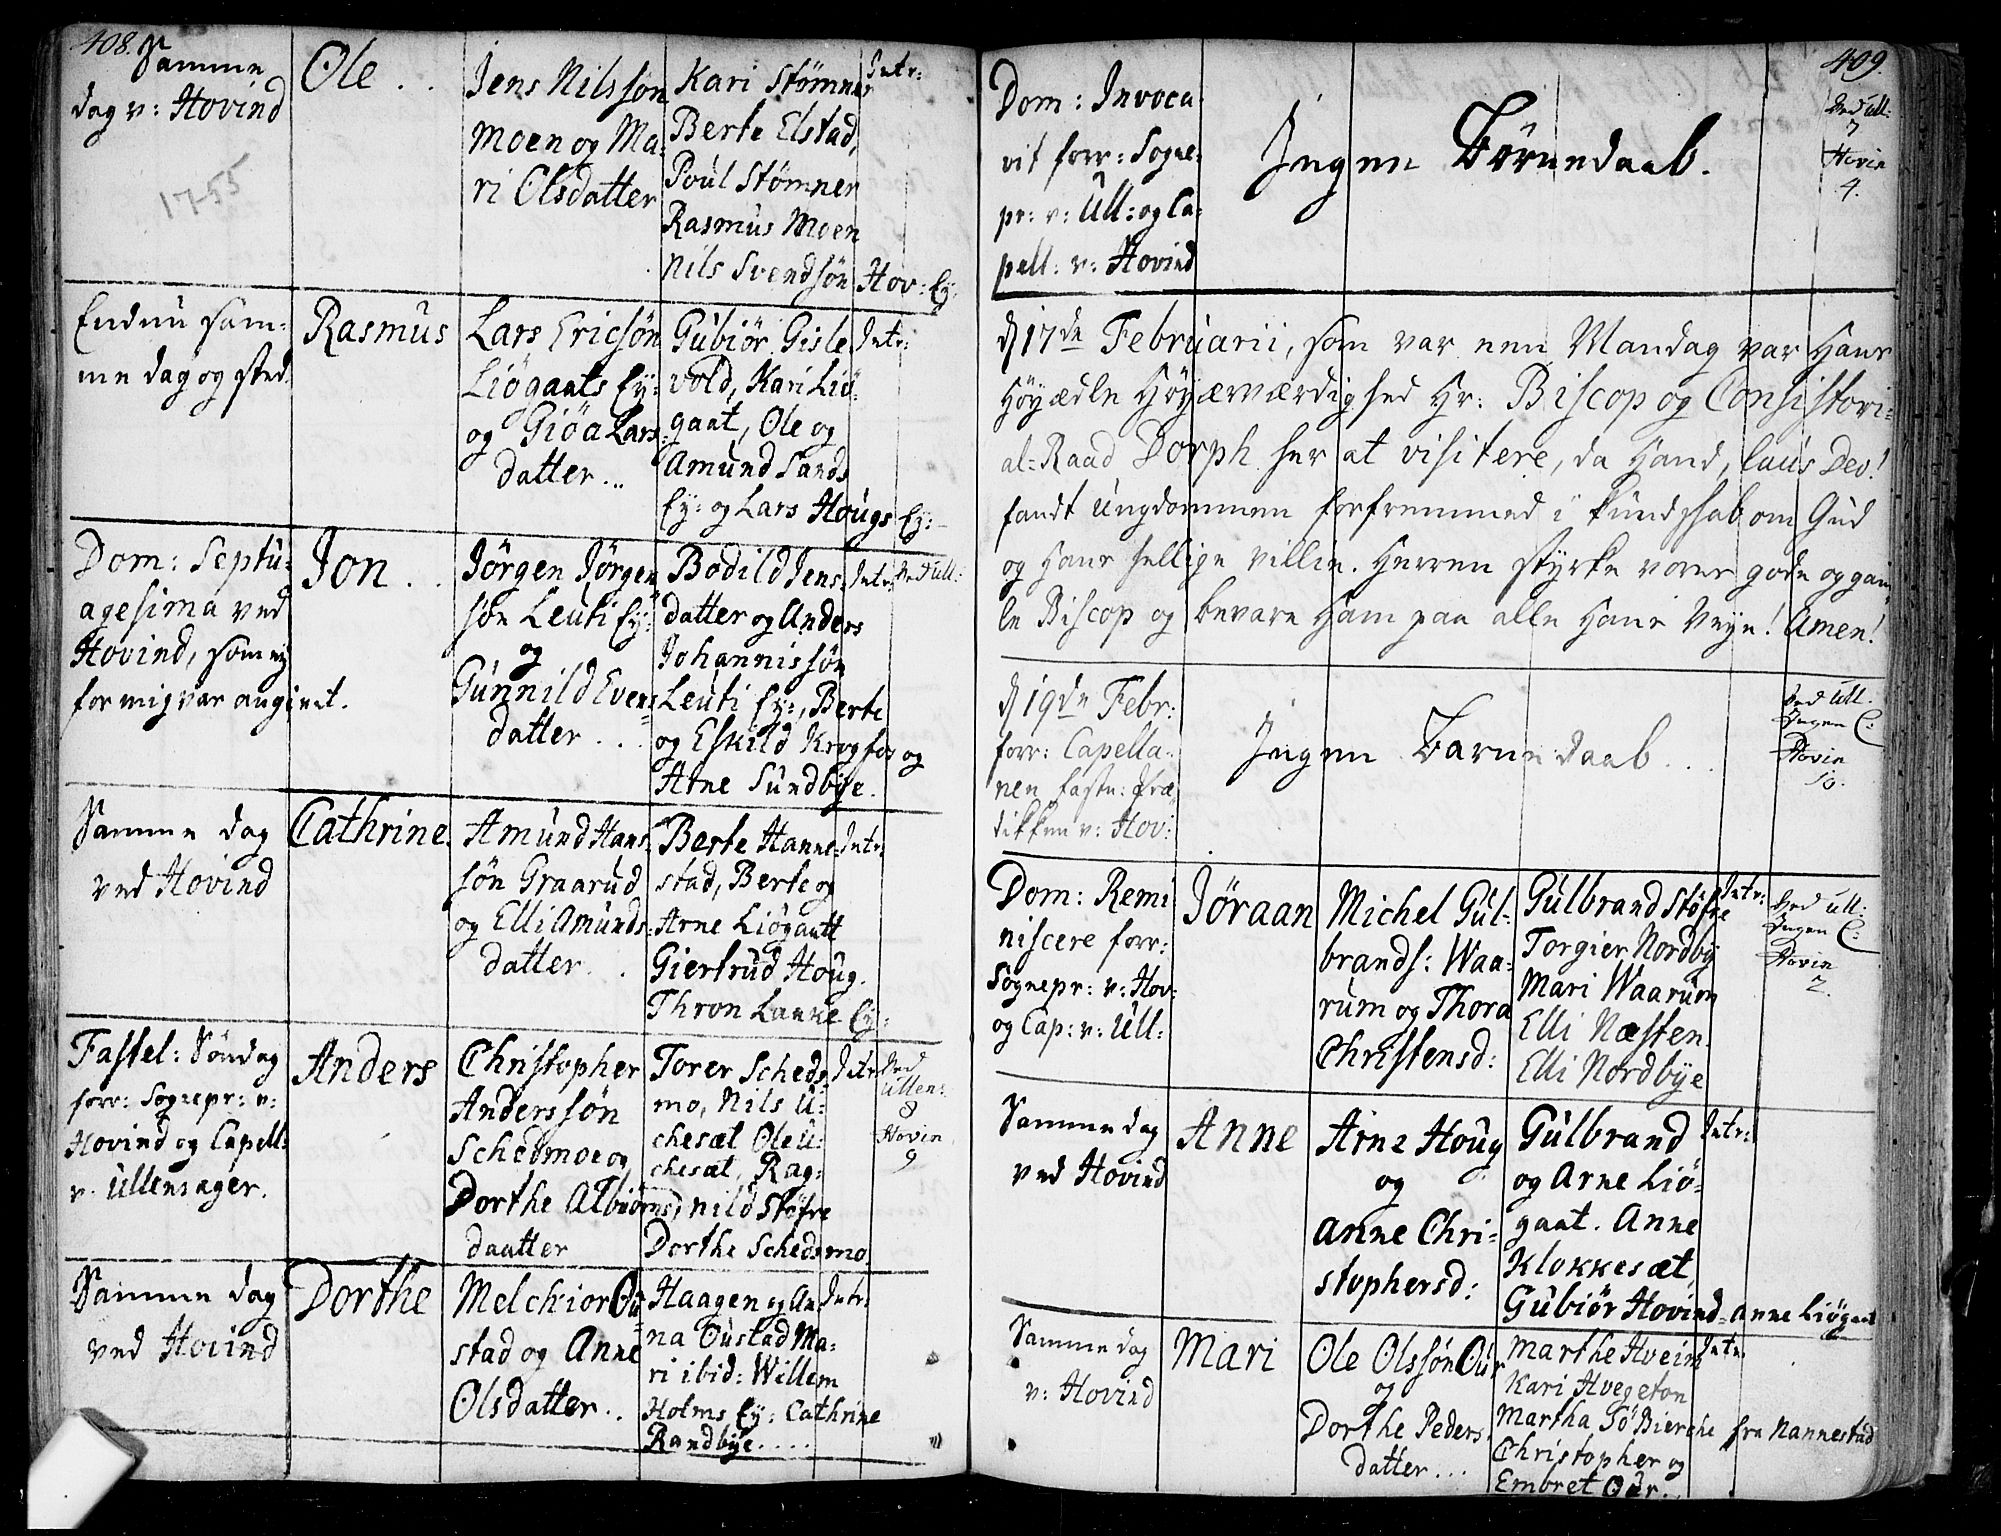 408.
Samme
dag v: Hovind
1755
Ole . .
Jens Nilssøn
Moen og Ma-
ri Olsdatter
Kari Stømner
Berte Elstad,
Poul Stømner
Rasmus Moen
Nils Svendsøn Hov: Ey:
Intr:
Endnu sam-
me dag og sted.
Rasmus
Lars Ericsøn
Liøgaats Ey:
og Giøa Lars-
datter...
Gubiør Gisle
vold, Kari Liø-
gaat, Ole og
Amund Sands
Ey: og Lars Hougs Ey:
Intr:
Dom: Septu-
agesima ved
Hovind, som ey
for mig var angivet.
Jon . .
Jörgen Jörgen
søn Leuti Ey:
og
Gunnild Evens-
datter . . .
Bodild Jens
datter og Anders
Johannissøn
Leuti Ey:, Berte
og Eskild Krogfos og
Arne Sundbye.
Intr:
Ved Ull:
Samme dag
ved Hovind
Cathrine.
Amund Hans-
søn Graarud
og Elli Amunds-
datter . .
Berte Hanne-
stad, Berte og
Arne Liøgaatt
Giertrud Houg.
Thron Lanke Ey:
Intr:
Fastel: Søndag
forr: Sognepr: v:
Hovind og Capell:
v. Ullensager.
Anders
Christopher
Anderssøn
Schedmoe og
Dorthe Albiørns
daatter
Torer Scheds
mo, Nils U-
chesæt Ole U-
chesæt, Rag-
nild Støfre
Dorthe Schedsmo.
Intr
Ved
Ullen:
8
Hovin
9
Samme dag
ved Hovind
Dorthe
Melchior Ou-
stad og Anne
Olsdatter . .
Haagen og An
na Oustad Ma-
ri ibid: Willem
Holms Ey: Cathrine
Randbye. . . .
Intr:
409.
Dom: Invoca
vit forr: Sogne-
pr: v: Ull: og Ca-
pell: v: Hovind
Ingen Börnedaab.
Ved Ull:
7
Hovin
4.
d 17de Februarii, som var een Mandag var Hans
Høyædle Høyærværdighed Hr: Biscop og Consistori-
al-Raad Dorph her at visitere, da Hand, laus Deo!
fandt Ungdommen forfremmed i kundskab om Gud
og Hans hellige villie. Herren styrke vores gode og gam
le Biscop og bevare Ham paa alle Hans Veye! Amen!
d 19de Febr:
forr: Capella-
nen faste: Præ
dikken v: Hov:
Ingen Barnedaab . .
Ved Ull.
Ingen C:
Hovin
10.
Dom: Remi
niscere forr:
Sognepr: v: Hov:
og Cap: v: Ull:
Jöraan
Michel Gul-
brands: Waa-
rum og Thora
Christensd:
Gulbrand Støfre
Torgier Nordby
Mari Waarum
Elli Næsten.
Elli Nordbye
Intr:
Ved Ull:
Ingen C:
Hovin
2.
Samme dag
ved Hovind
Anne
Arne Houg
og
Anne Chri-
stophersd:
Gulbrand
og Arne Liø-
gaat. Anne
Klokkesæt,
Gubiør Hovind - Anne Liøgaat
Intr:
Samme dag
v: Hovind
Mari
Ole Olssøn Our
og
Dorthe Peders-
datter . . .
Marthe Hveim
Kari Hvegeton
Martha Sö Bierche fra Nannestad
Christopher og
Embret Our.
Intr.